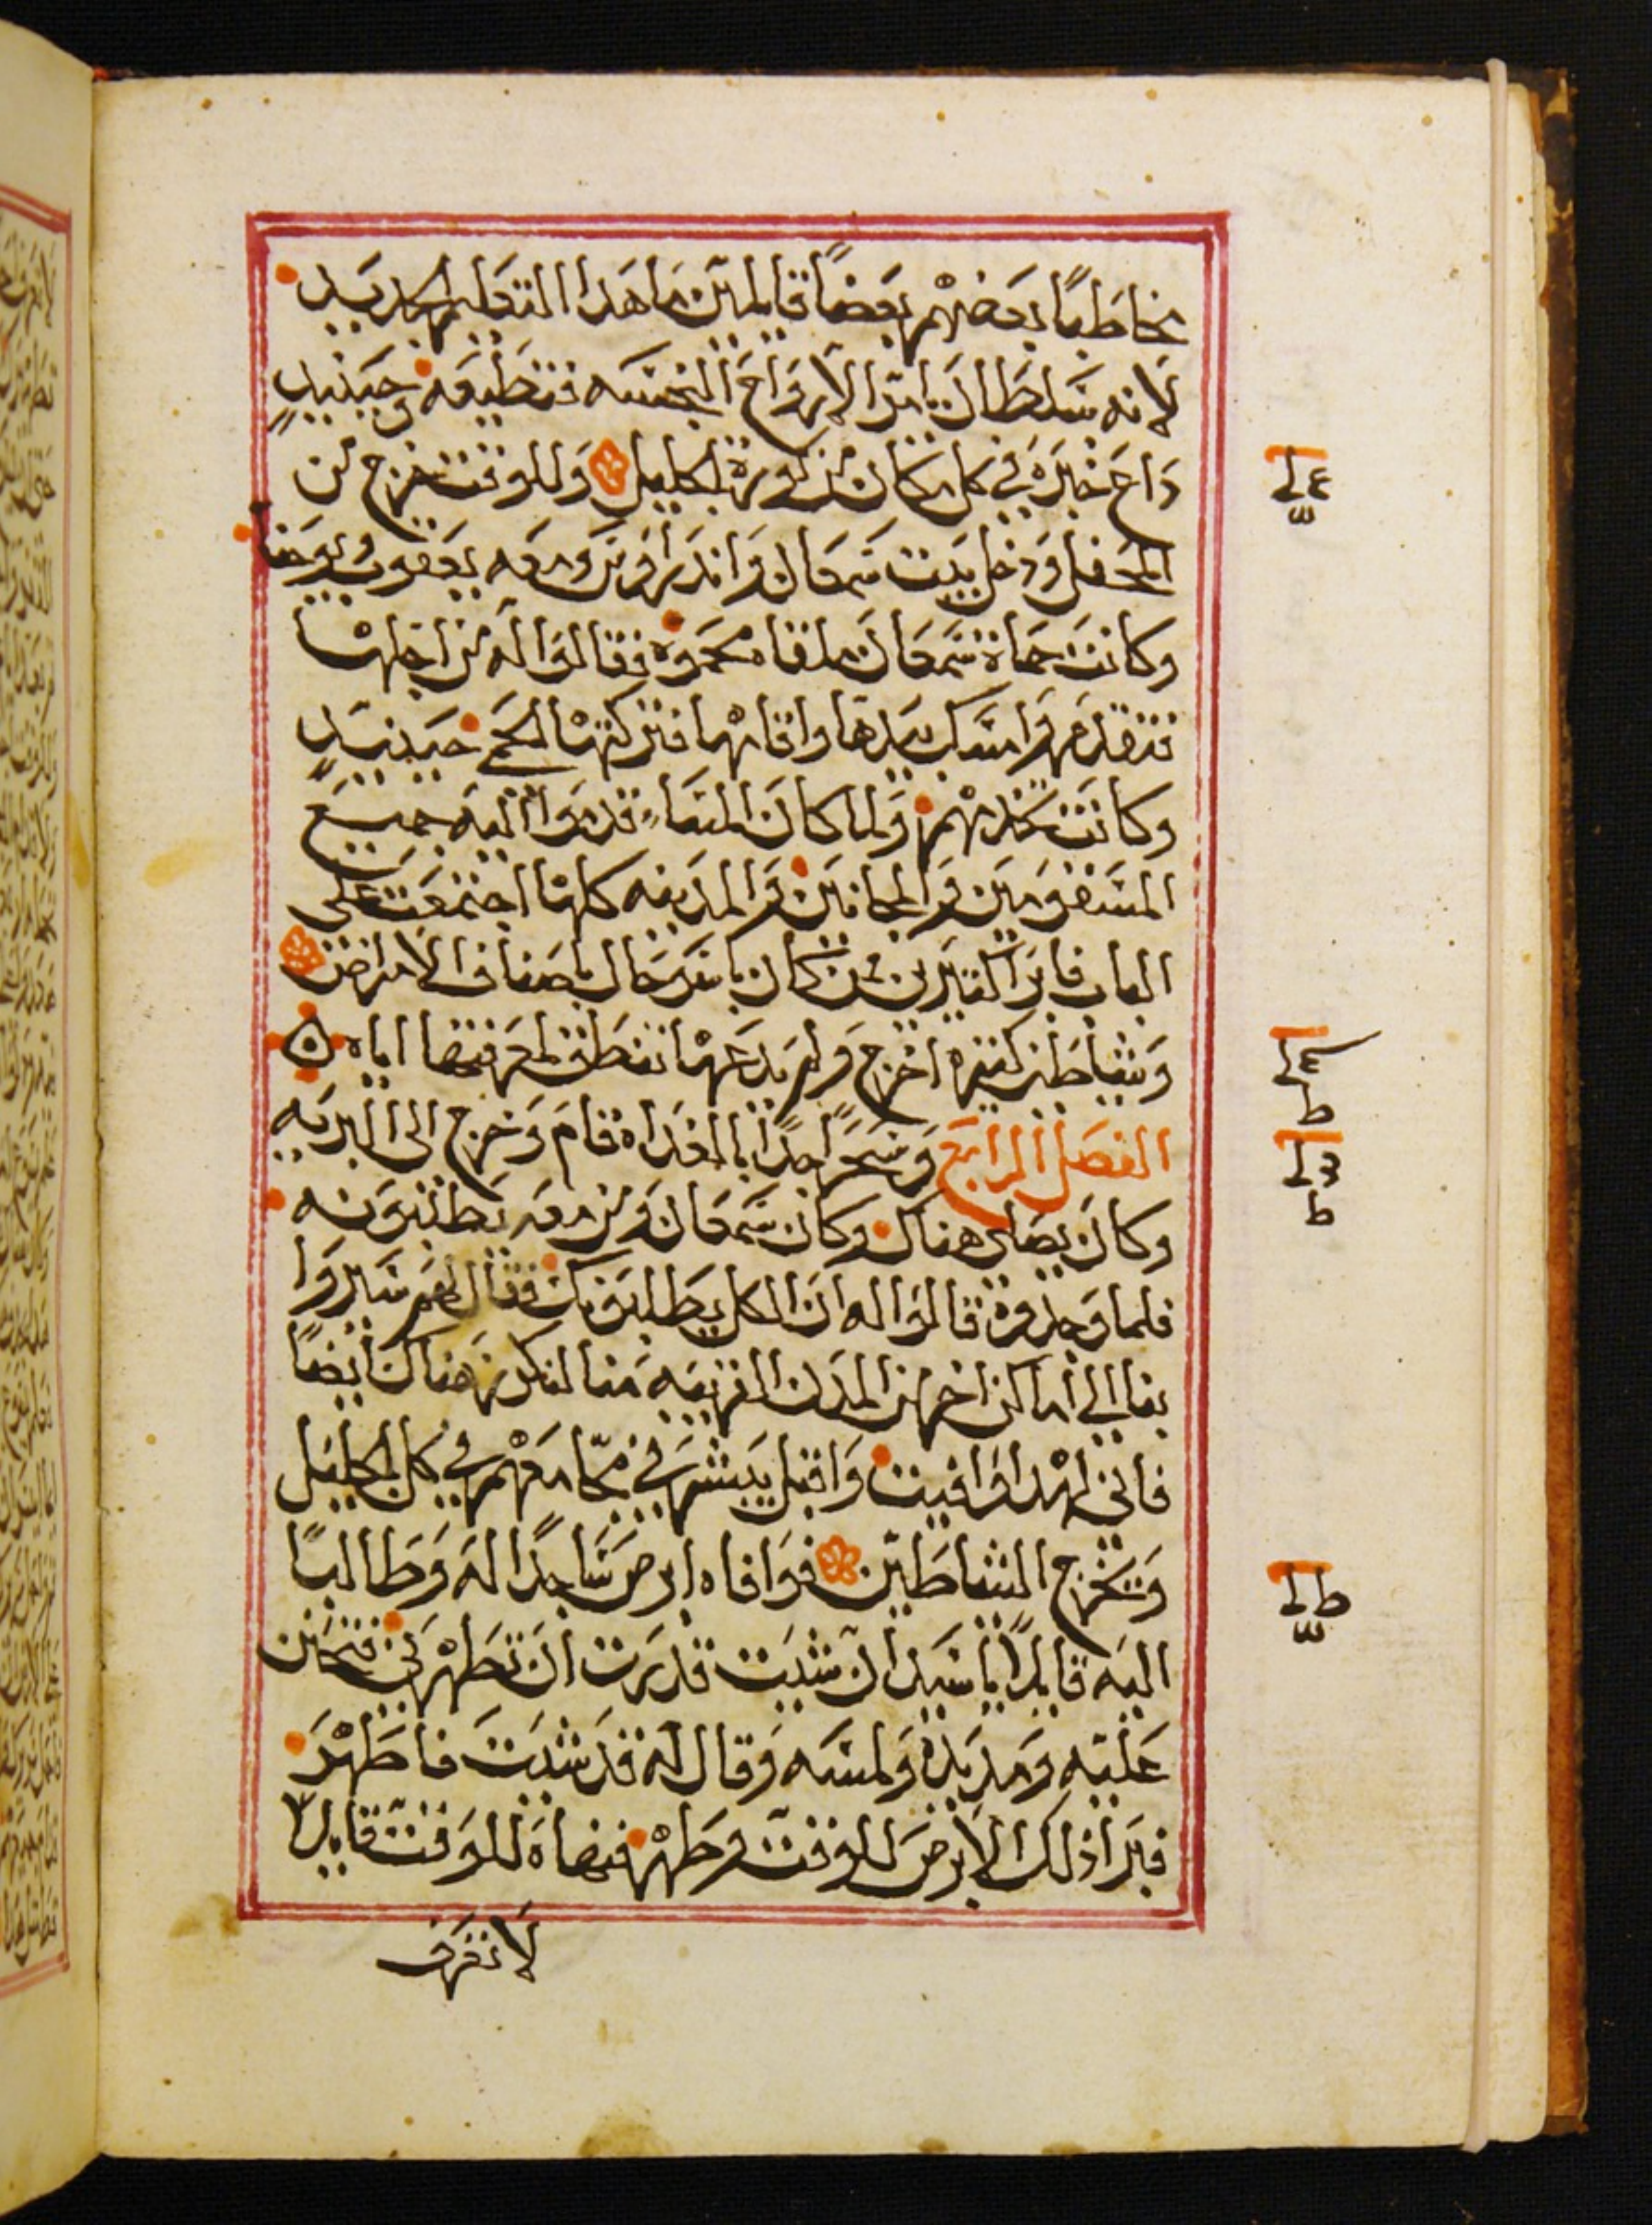 مخاطبًا بعضهم بعضًا قايلين ما هدا التعليم الجديد
لانه بسلطان يامر الارواح النجسه فتطيعه وحينيدٍ
داع خبره في كل مكان من كورة الجليل وللوقت خرج من
المحفل ودخل بيت سمعان واندراوس ومعه يعقوب ويوحنا
وكانت حماة سمعان ملقاه محمومه فقالوا له من اجلها
فتقدم وامسك بيدها واقامها فتركتها الحمى حينيدٍ
وكانت تخدمهم ولما كان المساء قدموا اليه جميع
المسقومين والمجانين والمدينه كلها اجتمعت على
الباب فابرا كتيرين ممن كان باسو حال باصناف الامراض
وشياطين كتيره اخرج ولم يدعها تنطق لمعرفتها اياه
الفصل الرابع وسحرًا جدًا بالغداه قام وخرج الى البريه
وكان يصلى هناك وكان سمعان ومن معه يطلبونه
فلما وجدوه قالوا له ان الكل يطلبونك فقال لهم سيروا
بنا الي اماكن اخر من المدن القريبه منا لنكرز هناك ايضًا
فاني لهدا وافيت واقبل يبشر في مجامعهم في كل الجليل
ويخرج الشياطين فوافاه ابرص ساجدًا له وطالبًا
اليه قايلًا يا سيد ان شيت قدرت ان تطهرني فتحنن
عليه ومد يده ولمسه وقال له قد شيت فاطهر
فبرا ذلك الابرص للوقت وطهر فنهاه للوقت قايلًا
لا تعرف